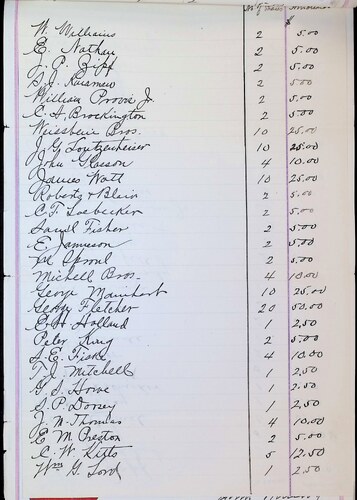 No of
$
W. Williams 2 5.00
E. Nathan 2 5.00
J. P. Ziff 2 5.00
S. J. 2 5.00
William Provin Jr 2 5.00
C. A. Brockington 2 5.00
Weissbein Bros. 10 25.00
J. G. Loutzenheiser 10 25.00
John Gleeson 4 10.00
James Watt 10 25.00
Roberts & Blair 2 5.00
C. F. Loebecker 2 5.00
Saml Fisher 2 5.00
E. Jamieson 2 5.00
Sproul 2 5.00
Michell Bros. 4 10.00
George Mainhart 10 25.00
George Fletcher 20 50.00
E. H. Holland 1 2.50
Peter King 2 5.00
S. E. Fiske 4 10.00
T. J. Mitchell 1 2.50
G. S. Howe 1 2.50
S. P. Dorsey 1 2.50
J. M. Thomas 4 10.00
E. M. Preston 2 5.00
C. W. Kitts 5 12.50
Wm G. Lord 1 2.50